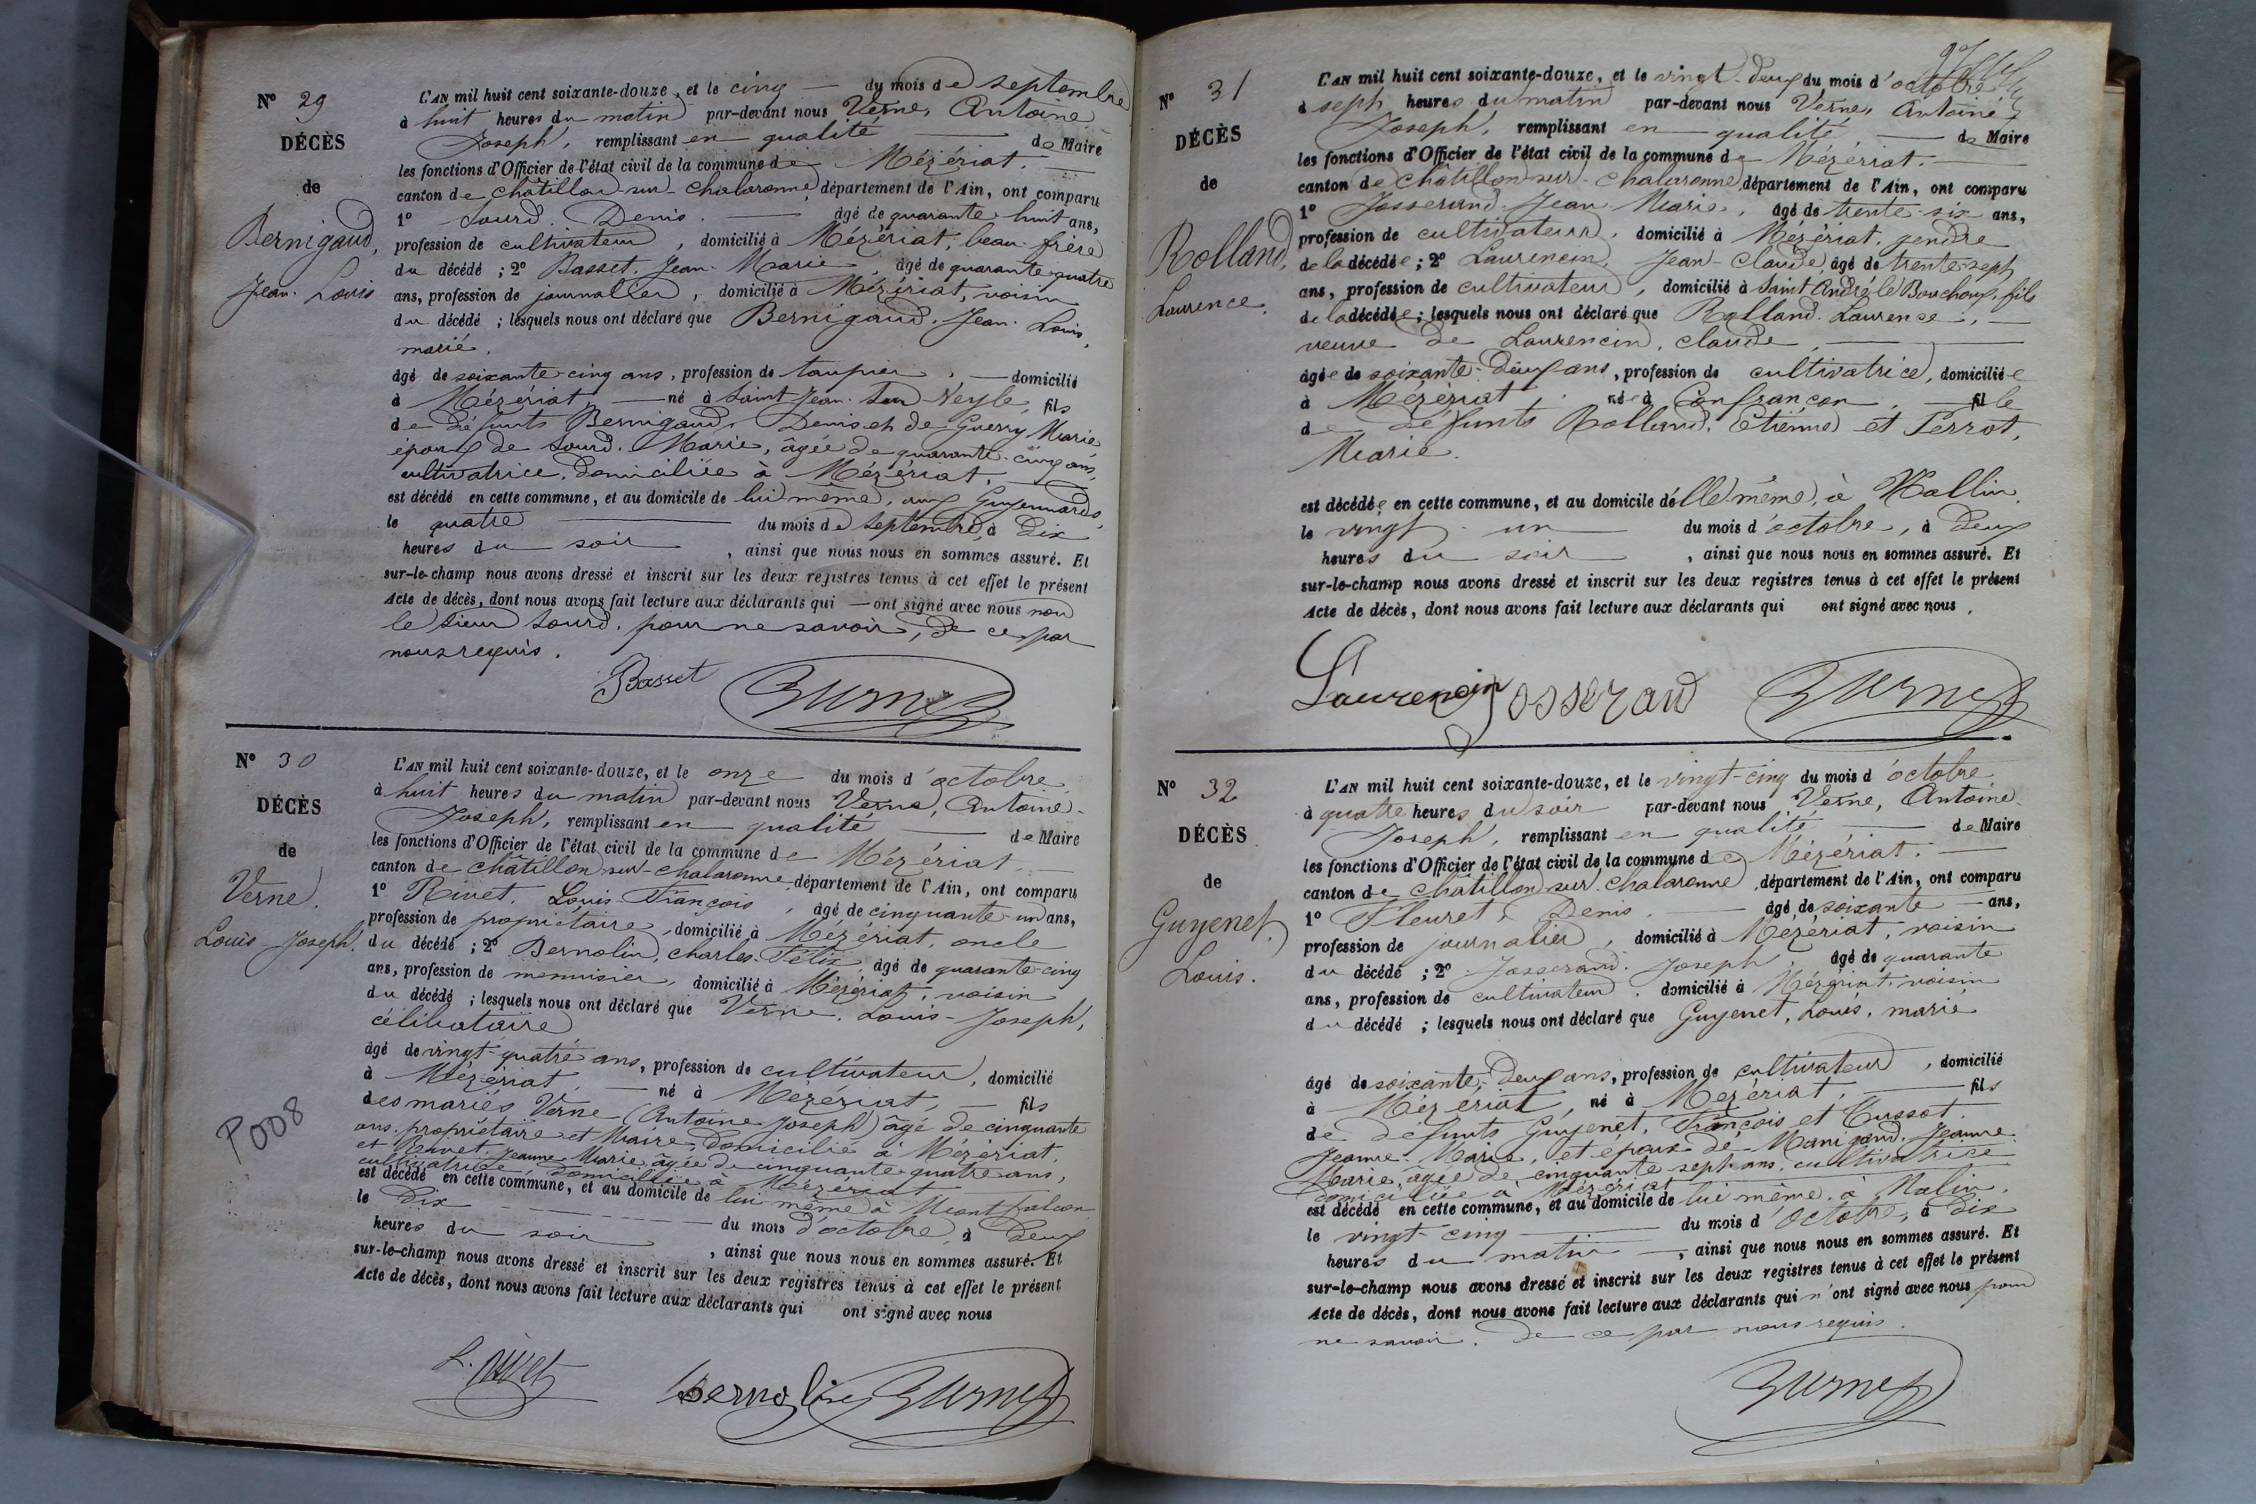 N° 29
DÉCÈS
de
Bernigaud,
Jean-Louis
L'AN mil huit cent soixante-douze, et le cinq du mois de septembre
à huit heures du matin par-devant nous Verne, Antoine
Joseph, remplissant en qualité de Maire
les fonctions d'Officier de l'état civil de la commune de Mézériat.
canton de Châtillon-sur-Chalaronne, département de l'Ain, ont comparu
1° Sourd. Denis. âgé de quarante-huit ans,
profession de cultivateur, domicilié à Mézériat, beau-frère
du décédé ; 2° Basset. Jean-Marie, âgé de quarante-quatre
ans, profession de journalier, domicilié à Mézériat, voisin
du décédé ; lesquels nous ont déclaré que Bernigaud. Jean-Louis,
marié.
âgé de soixante-cinq ans, profession de taupier, domicilié
à Mézériat, né à Saint-Jean-sur-Veyle, fils
de défunts Bernigaud, Denis et de Guerry Marie
époux de Sourd. Marie, âgée de quarante-cinq ans,
cultivatrice, domiciliée à Mézériat.
est décédé en cette commune, et au domicile de lui même, aux Guyennards,
le quatre du mois de septembre, à dix
heures du soir, ainsi que nous nous en sommes assuré. Et
sur-le-champ nous avons dressé et inscrit sur les deux registres tenus à cet effet le présent
Acte de décès, dont nous avons fait lecture aux déclarants qui ont signé avec nous non
le sieur Sourd. pour ne savoir, de ce par
nous requis.
Basset Verne
N° 30
DÉCÈS
de
Verne.
Louis-Joseph.
P008
L'AN mil huit cent soixante-douze, et le onze du mois d'octobre
à huit heures du matin par-devant nous Verne, Antoine-
Joseph, remplissant en qualité de Maire
les fonctions d'Officier de l'état civil de la commune de Mézériat
canton de Châtillon-sur-Chalaronne, département de l'Ain, ont comparu
1° Rivet. Louis-François, âgé de cinquante-un ans,
profession de propriétaire, domicilié à Mézériat, oncle
du décédé ; 2° Bernolin, Charles-Félix, âgé de quarante-cinq
ans, profession de menuisier, domicilié à Mézériat, voisin
du décédé ; lesquels nous ont déclaré que Verne. Louis-Joseph,
célibataire
âgé de vingt-quatre ans, profession de cultivateur, domicilié
à Mézériat, né à Mézériat, fils
des mariés Verne (Antoine Joseph) âgé de cinquante
ans. propriétaire et Maire, domicilié à Mézériat,
et Rivet. Jeanne Marie, âgée de cinquante quatre ans,
cultivatrice, domiciliée à Mézériat
est décédé en cette commune, et au domicile de lui même à Montfalcon
le dix du mois d'octobre, à deux
heures du soir, ainsi que nous nous en sommes assuré. Et
sur-le-champ nous avons dressé et inscrit sur les deux registres tenus à cet effet le présent
Acte de décès, dont nous avons fait lecture aux déclarants qui ont signé avec nous
L. Rivet Bernolin Verne
N° 31
DÉCÈS
de
Rolland,
Laurence.
L'AN mil huit cent soixante-douze, et le vingt-deux du mois d'octobre
à sept heures du matin par-devant nous Verne, Antoine
Joseph, remplissant en qualité de Maire
les fonctions d'Officier de l'état civil de la commune de Mézériat.
canton de Châtillon-sur-Chalaronne, département de l'Ain, ont comparu
1° Josserand. Jean Marie, âgé de trente-six ans,
profession de cultivateur, domicilié à Mézériat, gendre
de la décédée ; 2° Laurencin, Jean-Claude, âgé de trente-sept
ans, profession de cultivateur, domicilié à Saint André le Bouchoux, fils
de la décédée ; lesquels nous ont déclaré que Rolland. Laurence,
veuve de Laurencin. Claude,
âgée de soixante-deux ans, profession de cultivatrice, domiciliée
à Mézériat. née à Confrançon, fille
de défunts Rolland. Etienne et Perrot,
Marie.
est décédée en cette commune, et au domicile d'elle même, à Mallin,
le vingt-un du mois d'octobre, à deux
heures du soir, ainsi que nous nous en sommes assuré. Et
sur-le-champ nous avons dressé et inscrit sur les deux registres tenus à cet effet le présent
Acte de décès, dont nous avons fait lecture aux déclarants qui ont signé avec nous.
Laurencin Josserand Verne
N° 32
DÉCÈS
de
Guyenet,
Louis.
L'AN mil huit cent soixante-douze, et le vingt-cinq du mois d'octobre
à quatre heures du soir par-devant nous Verne, Antoine
Joseph, remplissant en qualité de Maire
les fonctions d'Officier de l'état civil de la commune de Mézériat.
canton de Châtillon-sur-Chalaronne, département de l'Ain, ont comparu
1° Fleuret, Denis. âgé de soixante ans,
profession de journalier, domicilié à Mézériat, voisin
du décédé ; 2° Josserand. Joseph, âgé de quarante
ans, profession de cultivateur, domicilié à Mézériat, voisin
du décédé ; lesquels nous ont déclaré que Guyenet, Louis, marié
âgé de soixante-deux ans, profession de cultivateur, domicilié
à Mézériat, né à Mézériat, fils
de défunts Guyenet, François et Tussot.
Jeanne-Marie, et époux de Manigand, Jeanne
Marie, âgée de cinquante sept ans, cultivatrice
domiciliée à Mézériat
est décédé en cette commune, et au domicile de lui même, à Malin,
le vingt-cinq du mois d'octobre, à dix
heures du matin, ainsi que nous nous en sommes assuré. Et
sur-le-champ nous avons dressé et inscrit sur les deux registres tenus à cet effet le présent
Acte de décès, dont nous avons fait lecture aux déclarants qui n'ont signé avec nous pour
ne savoir. de ce par nous requis.
Verne